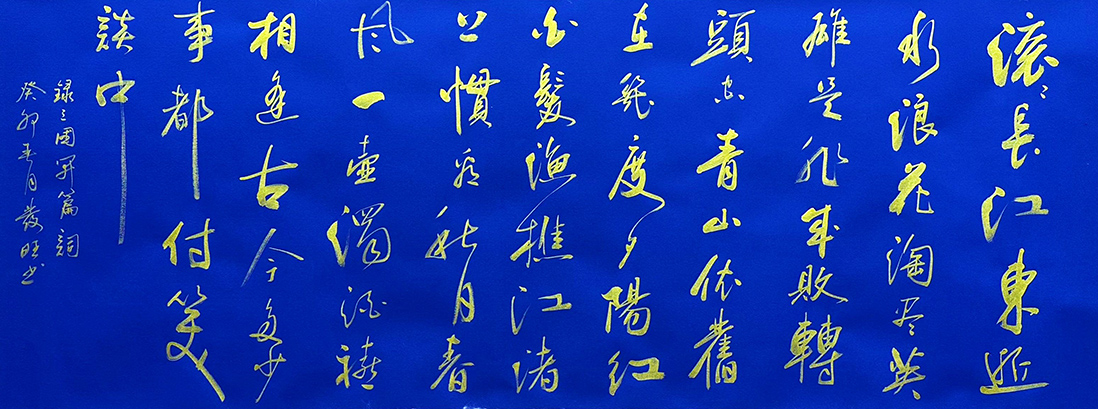 滚〻長江東逝
水浪花淘尽英
雄是非成敗轉
頭空青山依舊
在幾度夕陽红
白髮漁樵江渚
上慣看秋月春
風一壺濁酒禧
相逢古今多少
事都付笑
談中
録三國開篇詞
癸卯春月發旺书